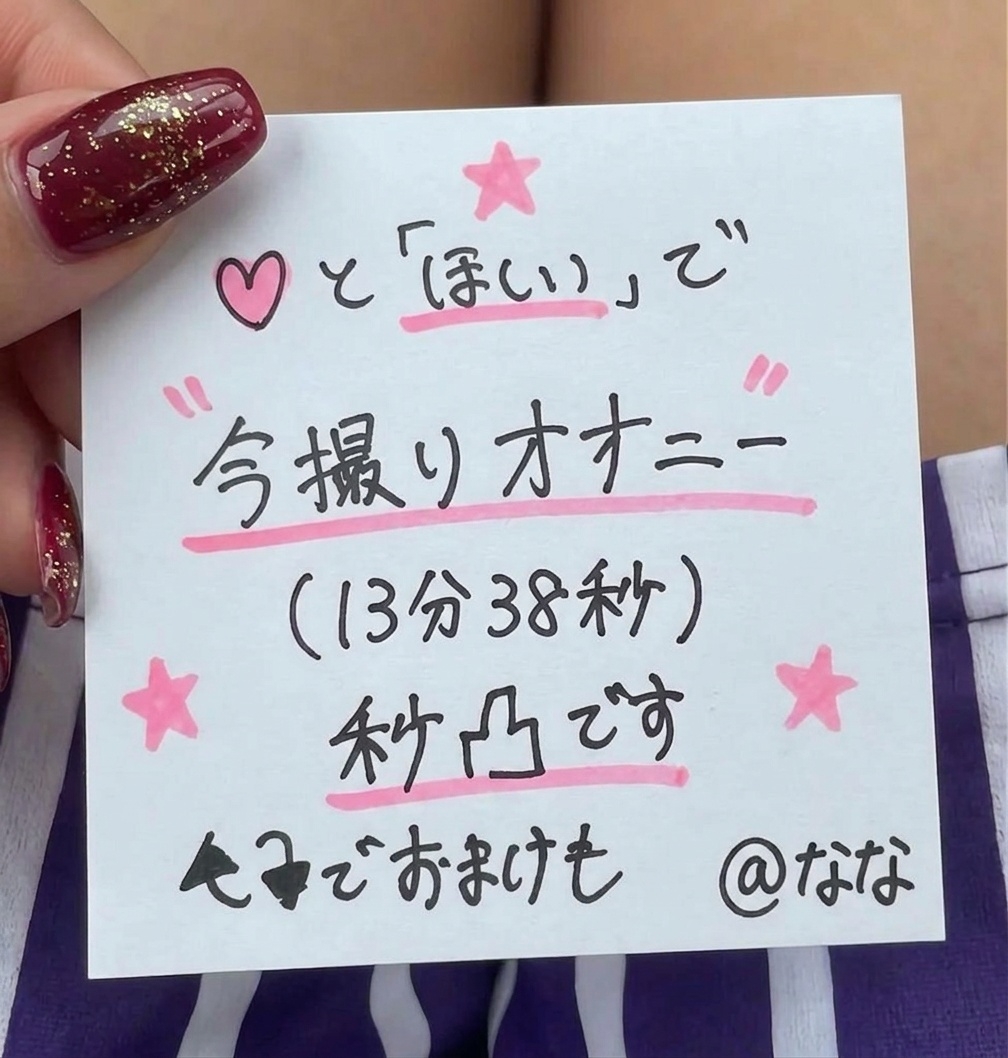 ♡と「ほしい」で
"今撮りオナニー"
(13分38秒)
秒凸です
でおまけも
@なな